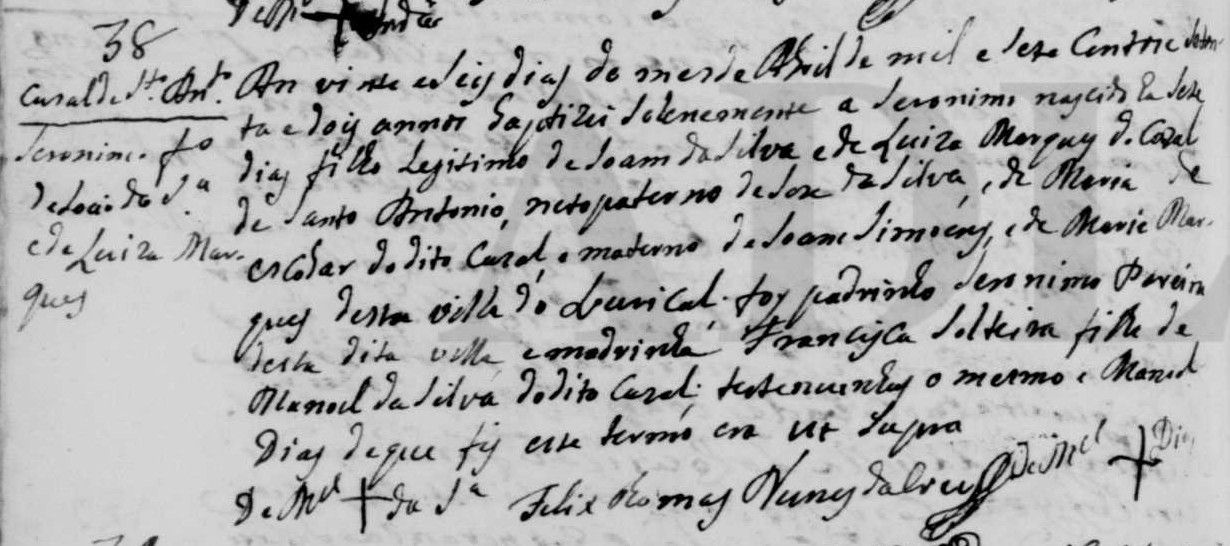 De Mel + Andre
38
Casal de Sto Anto.
Jeronimo fo
de João da Sa
e de Luiza Mar-
ques
An vinte e seis dias do mes de Abril de mil e sete Centos e seten-
ta e dois annos baptizei solenemente a Jeronimo nascido ha sete
dias filho Legitimo de Joam da Silva e de Luiza Marques do Cazal
de Santo Antonio, neto paterno de Jose da Silva, e de Maria de
escobar do dito Cazal, e materno de Joam Simoens, e de Maria Mar-
ques desta villa do Lourical. foy padrinho Jeronimo Pereira
desta dita villa, e madrinha Francisca solteira filha de
Manoel da Silva do dito Cazal; testemunhas o mesmo e Manoel
Dias de que fis este termo era ut supra
De Mel + da Sa Felix Thomas Nunes de Mel + Dias